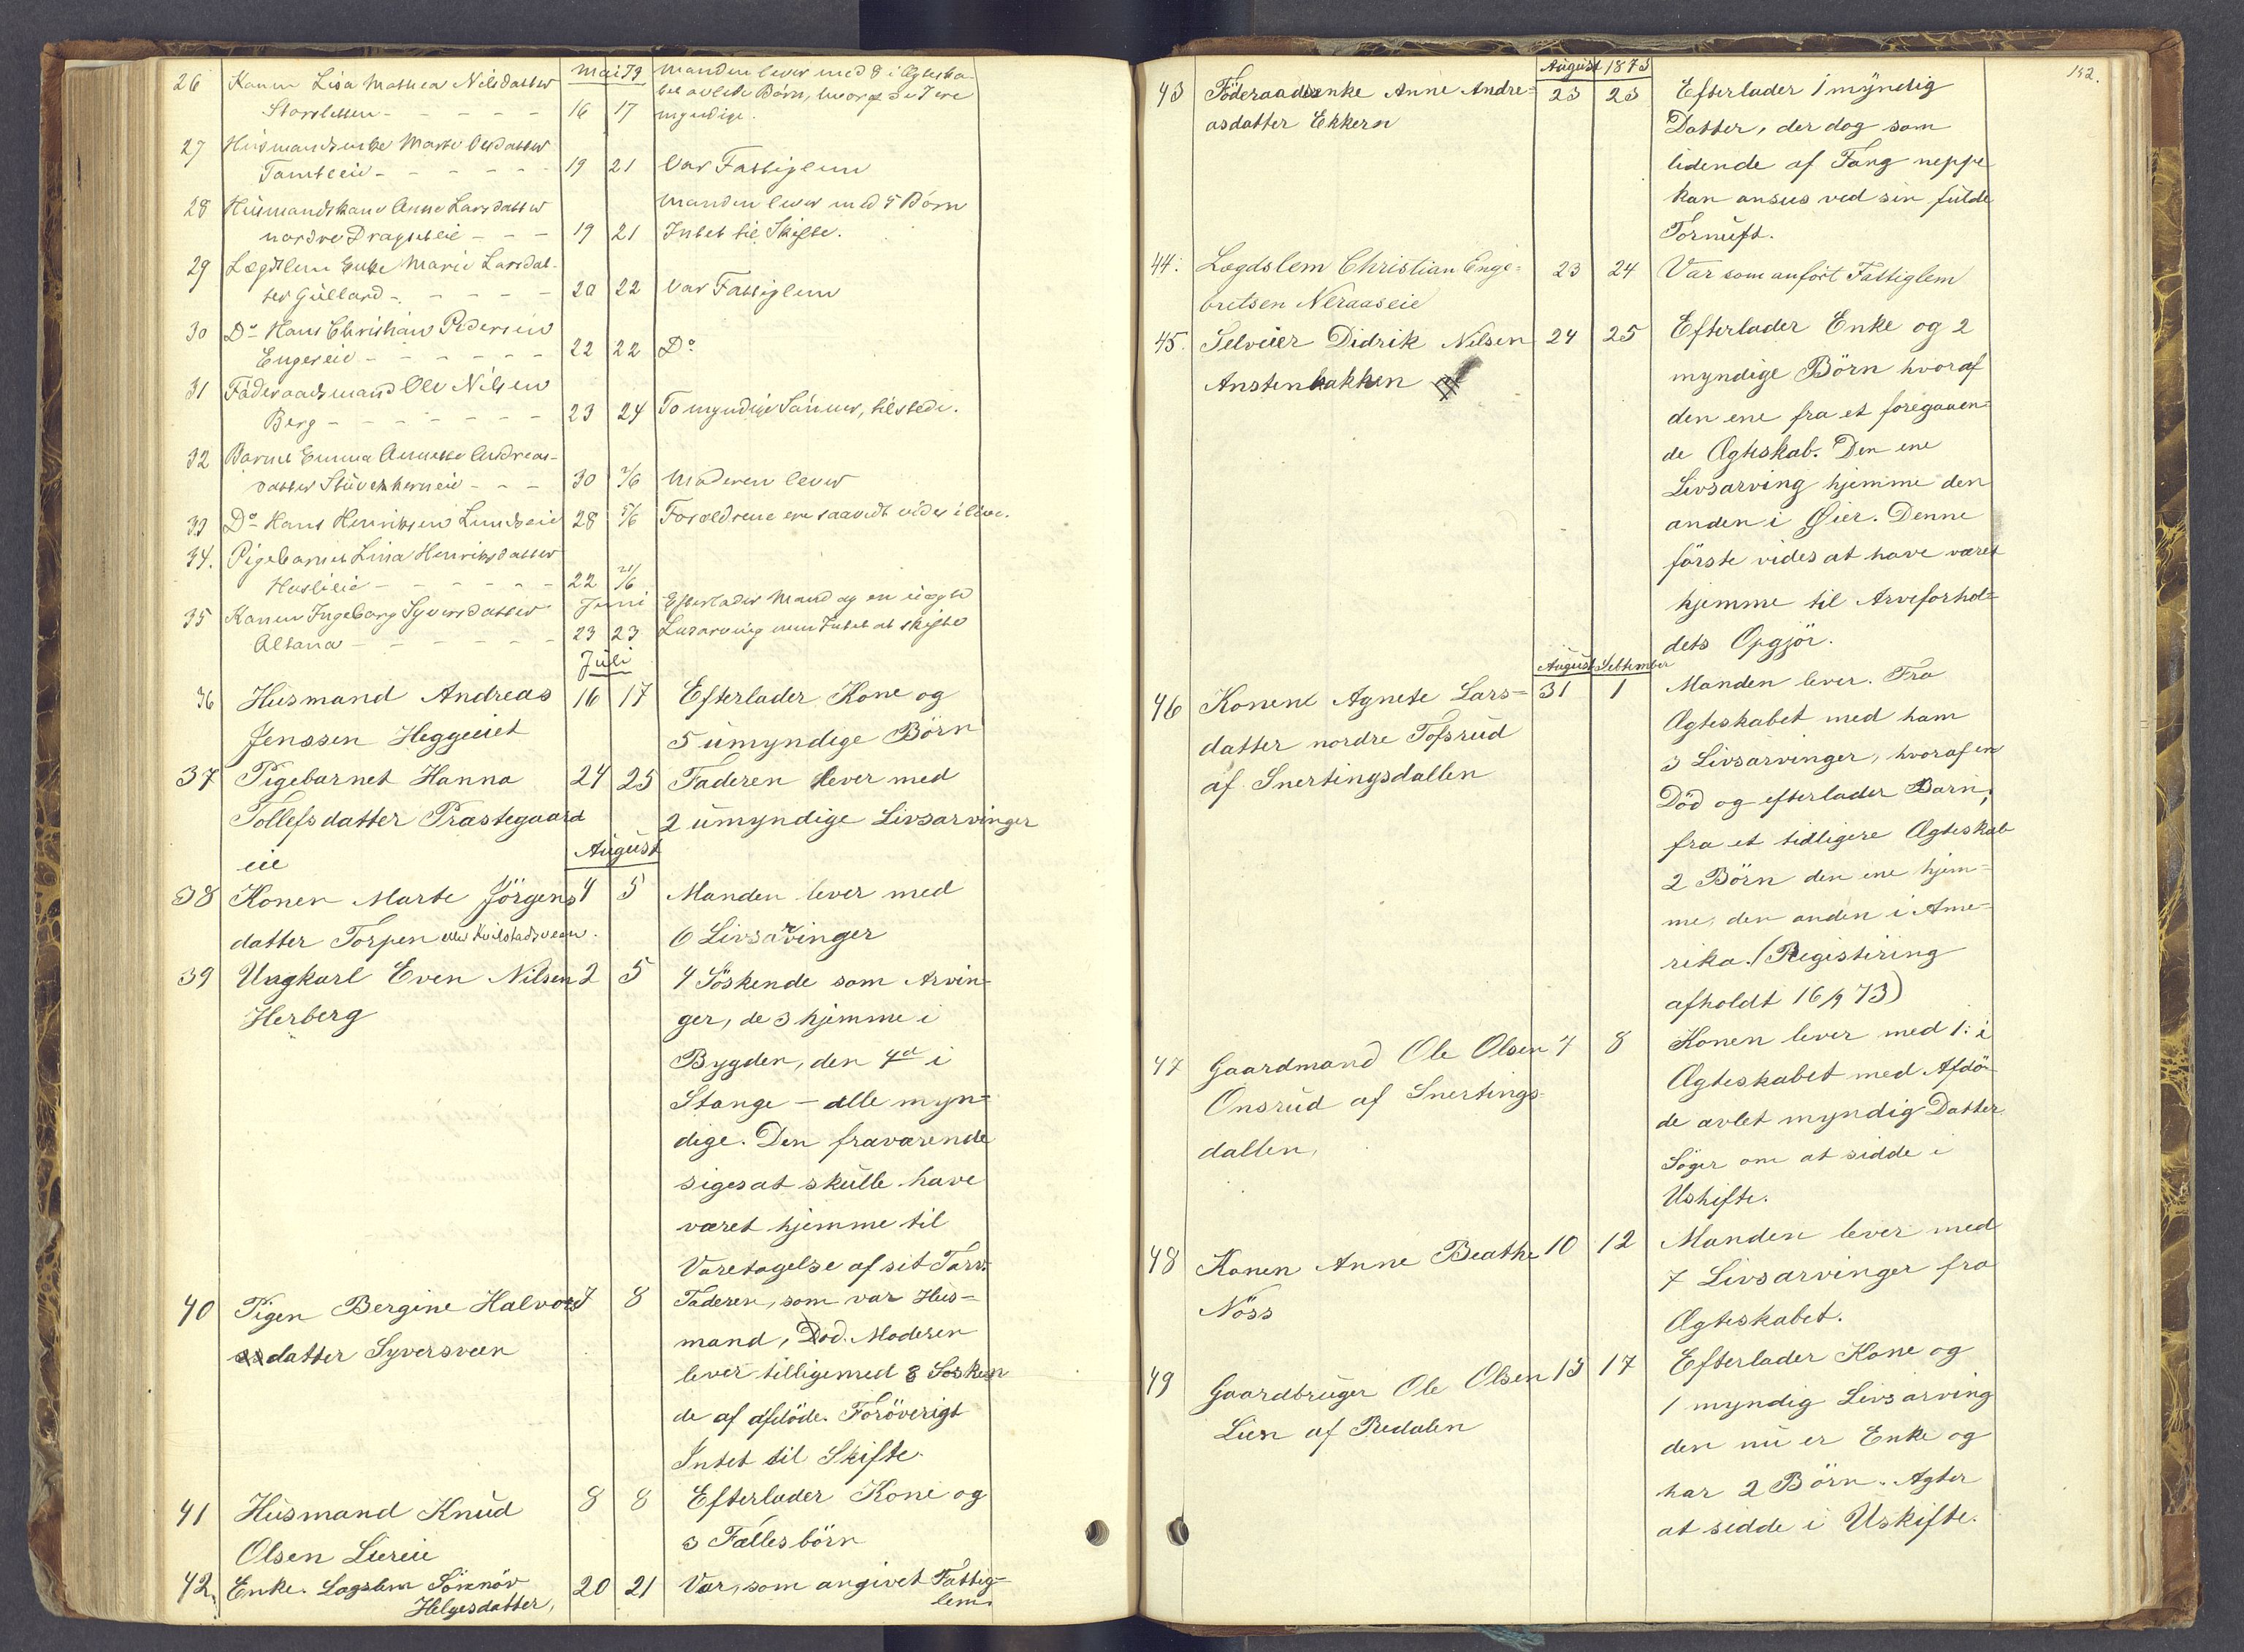 Mai 73
26 Konen Lisa Mathea Nilsdatter
Storsletten - - - - - 16 17
Manden lever med 8 i Ægteska-
bet avlede Börn, hvoraf de 7 ere
myndige.
27 Husmandsenke Marte Olsdatter
Tomteeie - - - - - 19 21 Var Fattiglem
28 Husmandskone Anne Larsdatter Manden lever med 5 Börn
nordre Dragseteie - - - 19 21 Intet til Skifte.
29 Lægdslem Enke Marie Larsdat-
ter Gullard - - - - - 20 22 Var Fattiglem
30 Do Hans Christian Pedersen
Engereie - - - - - - 22 22 Do
31 Föderaadsmand Ole Nilsen
Berg - - - - - - 23 24 To myndige Sönner, tilstede.
32 Barnet Emma Annette Andreas-
datter Stuvekkerneie - - - 30 2/6 Moderen lever
33 Do Hans Henriksen Lundseie 28 5/6 Foræeldrene ere saavidt vides i live.
34. Pigebarnet Lina Henriksdatter
Haslieie - - - - - - 22 21/6
Juni
35 Konen Ingeborg Syversdatter Efterlader Mand og en uægte
Altana - - - - - - 23 23 Livsarving men Intet at skifte
Juli
36 Husmand Andreas 16 17 Efterlader Kone og
Jenssen Heggeeiet 5 umyndige Börn
37 Pigebarnet Hanna 24 25 Faderen lever med
Tollefsdatter Præstegaard 2 umyndige Livsarvinger
eie
August
38 Konen Marte Jörgens 4 5 Manden lever med
datter Torpen eller Kvilstadsveen. 6 Livsarvinger
39 Ungkarl Even Nilsen 2 5 4 Söskende som Arvin-
Herberg ger, de 3 hjemme i
Bygden, den 4de i
Stange - alle myn=
dige. Den fraværende
siges at skulle have
været hjemme til
Varetagelse af sit Tarv.
40 Pigen Bergine Halvors 7 8 Faderen, som var Hus=
datter Syversveen mand, Död. Moderen
lever tilligemed 8 Sösken
de af afdöde. Foröverigt
Intet til Skifte.
41 Husmand Knud 8 8 Efterlader Kone og
Olsen Liereie 3 Fællesbörn
42. Enke. Lagslem Sönnöv 20 21 Var, som angivet Fattig=
Helgesdatter, lem.
152.
August 1873
43 Föderaadsenke Anne Andre= 23 23 Efterlader 1 myndig
asdatter Ekkern Datter, der dog som
lidende af Tang neppe
kan ansees ved sin fulde
Fornuft.
44. Lægdslem Christian Enge= 23 24 Var som anfört Fattiglem
bretsen Neraaseie
45. Selveier Didrik Nilsen 24 25 Efterlader Enke og 2
Anstenbakken myndige Börn hvoraf
den ene fra et foregaaen=
de Ægteskab. Den ene
Livsarving hjemme den
anden i Öier. Denne
förste vides at have været
hjemme til Arveforhol=
dets Opgjör.
August September
46 Konene Agnete Lars= 31 1 Manden lever. Fra
datter nordre Tofsrud Ægteskabet med ham
af Snertingsdallen 3 Livsarvinger, hvoraf en
Död og efterlader Barn;
fra et tidligere Ægteskab
2 Börn den ene hjem=
me, den anden i Ame=
rika. (Registering
afholdt 16/9 73)
47 Gaardmand Ole Olsen 4 8 Konen lever med 1. i
Onsrud af Snertings= Ægteskabet med Afdö-
dallen, de avlet myndig Datter
Söger om at sidde i
Uskifte.
48 Konen Anne Beathe 10 12 Manden lever med
Nöss 7 Livsarvinger fra
Ægteskabet.
49 Gaardbruger Ole Olsen 15 17 Efterlader Kone og
Lien af Redalen 1 myndig Livsarving
den nu er Enke og
har 2 Börn. Agter
at sidde i Uskifte.